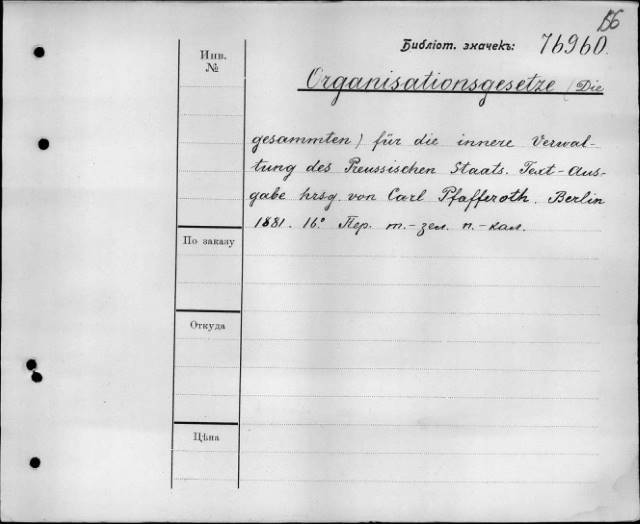 56
Библіот. значекъ: 76960.
Инв.
№
Organisationsgesetze (Die
gesammten) für die innere Verwal-
tung des Preussischen Staats. Text-Aus-
gabe hrsg. von Carl Pfafferoth. Berlin
1881. 16º Пер. т.-зел. п.-кал.
По заказу
Откуда
Цѣна